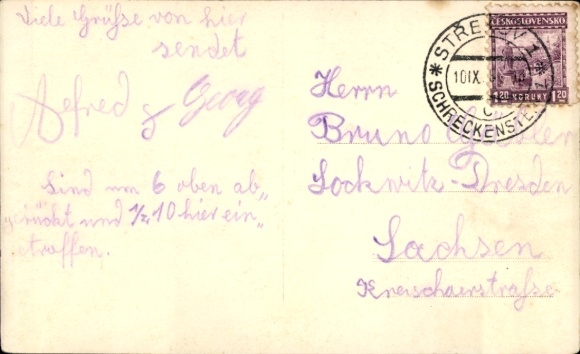 Viele Grüße von hier
sendet
Alfred g Georg
Sind um 6 oben ab„
gerückt und 1/2 10 hier ein„
etroffen.
STŘEKOV 1
10 IX
* SCHRECKENSTEIN *
ČESKOSLOVENSKO
1.20 KORUNY 1.20
Herrn
Bruno
Lockwitz-Dresden
Sachsen